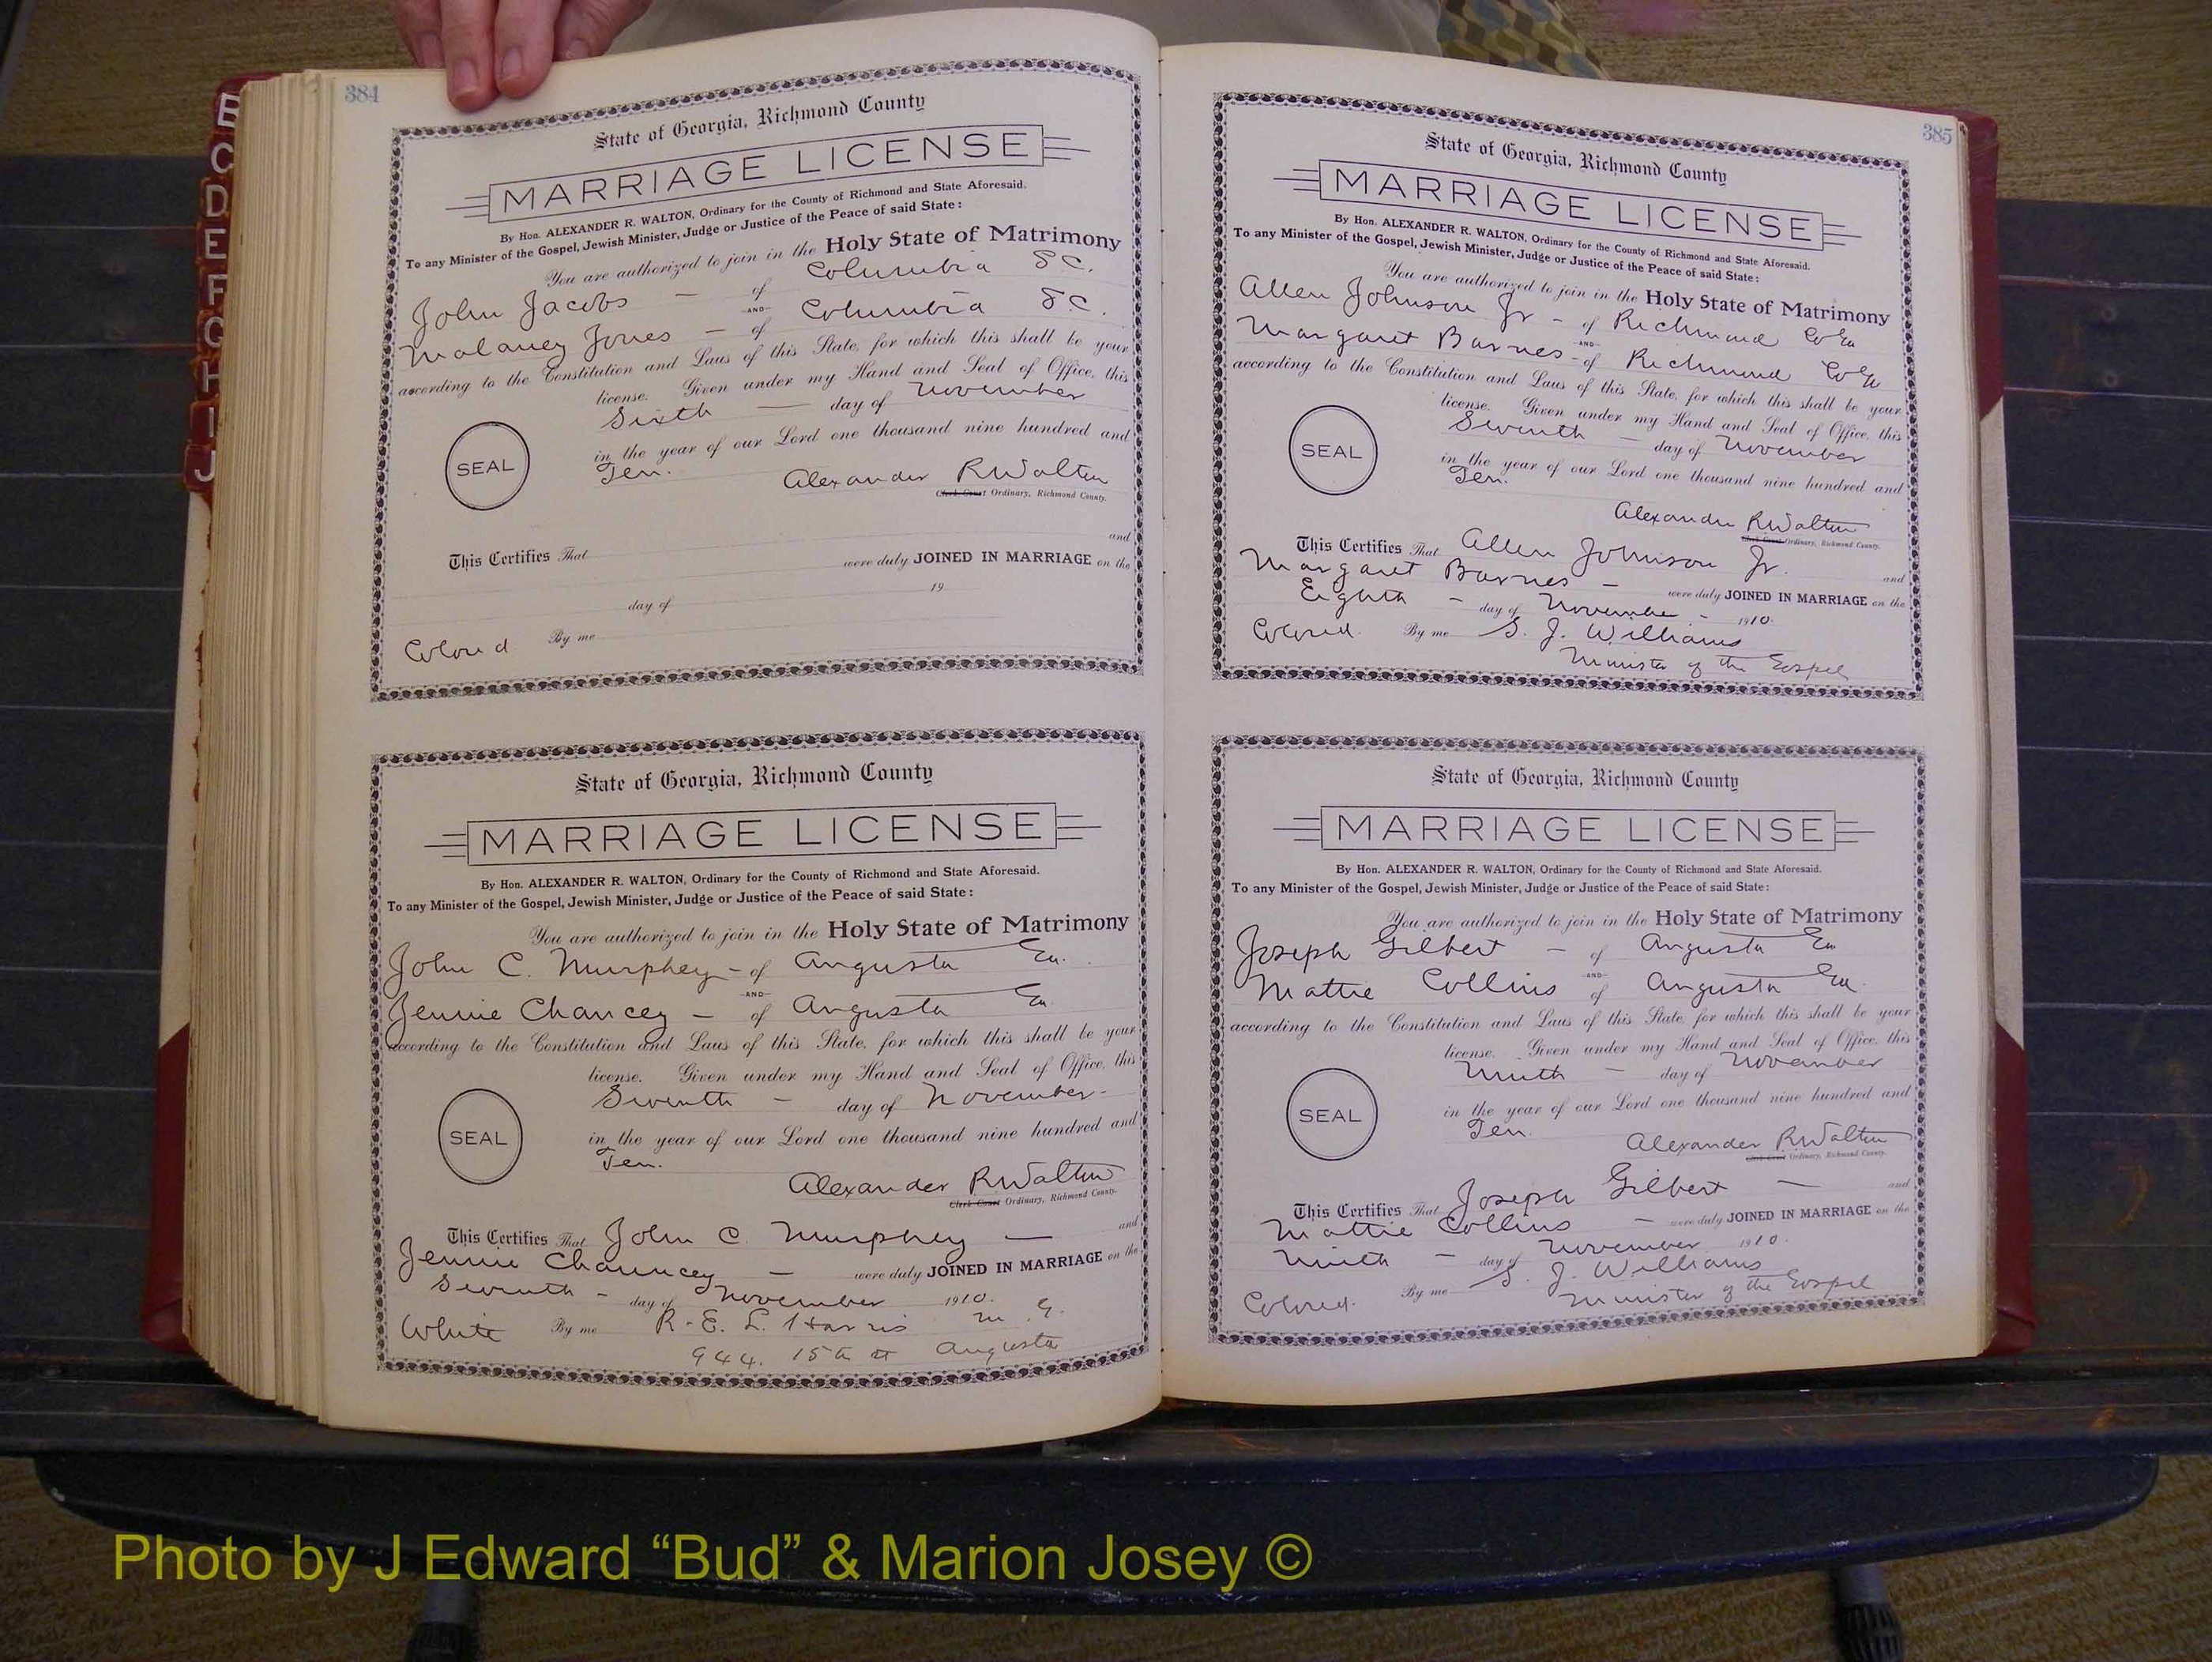 B
C
D
E
F
G
H
I
J
384
State of Georgia, Richmond County
MARRIAGE LICENSE
By Hon. ALEXANDER R. WALTON, Ordinary for the County of Richmond and State Aforesaid.
To any Minister of the Gospel, Jewish Minister, Judge or Justice of the Peace of said State:
You are authorized to join in the Holy State of Matrimony
John Jacobs — of Columbia S.C.
-AND-
Malaney Jones — of Columbia S.C.
according to the Constitution and Laws of this State, for which this shall be your
license. Given under my Hand and Seal of Office, this
Sixth — day of November
SEAL
in the year of our Lord one thousand nine hundred and
Ten.
Alexander R Walton
Clerk Court Ordinary, Richmond County.
This Certifies That and
were duly JOINED IN MARRIAGE on the
day of 19
Colored By me
State of Georgia, Richmond County
MARRIAGE LICENSE
By Hon. ALEXANDER R. WALTON, Ordinary for the County of Richmond and State Aforesaid.
To any Minister of the Gospel, Jewish Minister, Judge or Justice of the Peace of said State:
You are authorized to join in the Holy State of Matrimony
John C. Murphey – of Augusta Ga.
-AND-
Jennie Chancey – of Augusta Ga
according to the Constitution and Laws of this State, for which this shall be your
license. Given under my Hand and Seal of Office, this
Seventh – day of November
SEAL
in the year of our Lord one thousand nine hundred and
Ten.
Alexander R Walton
Clerk Court Ordinary, Richmond County.
This Certifies That John C. Murphey — and
Jennie Chauncey — were duly JOINED IN MARRIAGE on the
Seventh – day of November 1910.
White By me R. E. L. Harris M. G.
944. 15th st Augusta
385
State of Georgia, Richmond County
MARRIAGE LICENSE
By Hon. ALEXANDER R. WALTON, Ordinary for the County of Richmond and State Aforesaid.
To any Minister of the Gospel, Jewish Minister, Judge or Justice of the Peace of said State:
You are authorized to join in the Holy State of Matrimony
Allen Johnson Jr – of Richmond Co Ga
-AND-
Margaret Barnes – of Richmond Co Ga
according to the Constitution and Laws of this State, for which this shall be your
license. Given under my Hand and Seal of Office, this
Seventh — day of November
SEAL
in the year of our Lord one thousand nine hundred and
Ten.
Alexander R Walton
Clerk Court Ordinary, Richmond County.
This Certifies That Allen Johnson Jr. and
Margaret Barnes — were duly JOINED IN MARRIAGE on the
Eighth – day of November – 1910.
Colored. By me S. J. Williams
Minister of the Gospel
State of Georgia, Richmond County
MARRIAGE LICENSE
By Hon. ALEXANDER R. WALTON, Ordinary for the County of Richmond and State Aforesaid.
To any Minister of the Gospel, Jewish Minister, Judge or Justice of the Peace of said State:
You are authorized to join in the Holy State of Matrimony
Joseph Gilbert – of Augusta Ga
-AND-
Mattie Collins of Augusta Ga.
according to the Constitution and Laws of this State, for which this shall be your
license. Given under my Hand and Seal of Office, this
Ninth – day of November
SEAL
in the year of our Lord one thousand nine hundred and
Ten.
Alexander R Walton
Clerk Court Ordinary, Richmond County.
This Certifies That Joseph Gilbert — and
Mattie Collins — were duly JOINED IN MARRIAGE on the
Ninth – day of November 1910.
Colored. By me S. J. Williams
Minister of the Gospel
Photo by J Edward “Bud” & Marion Josey ©